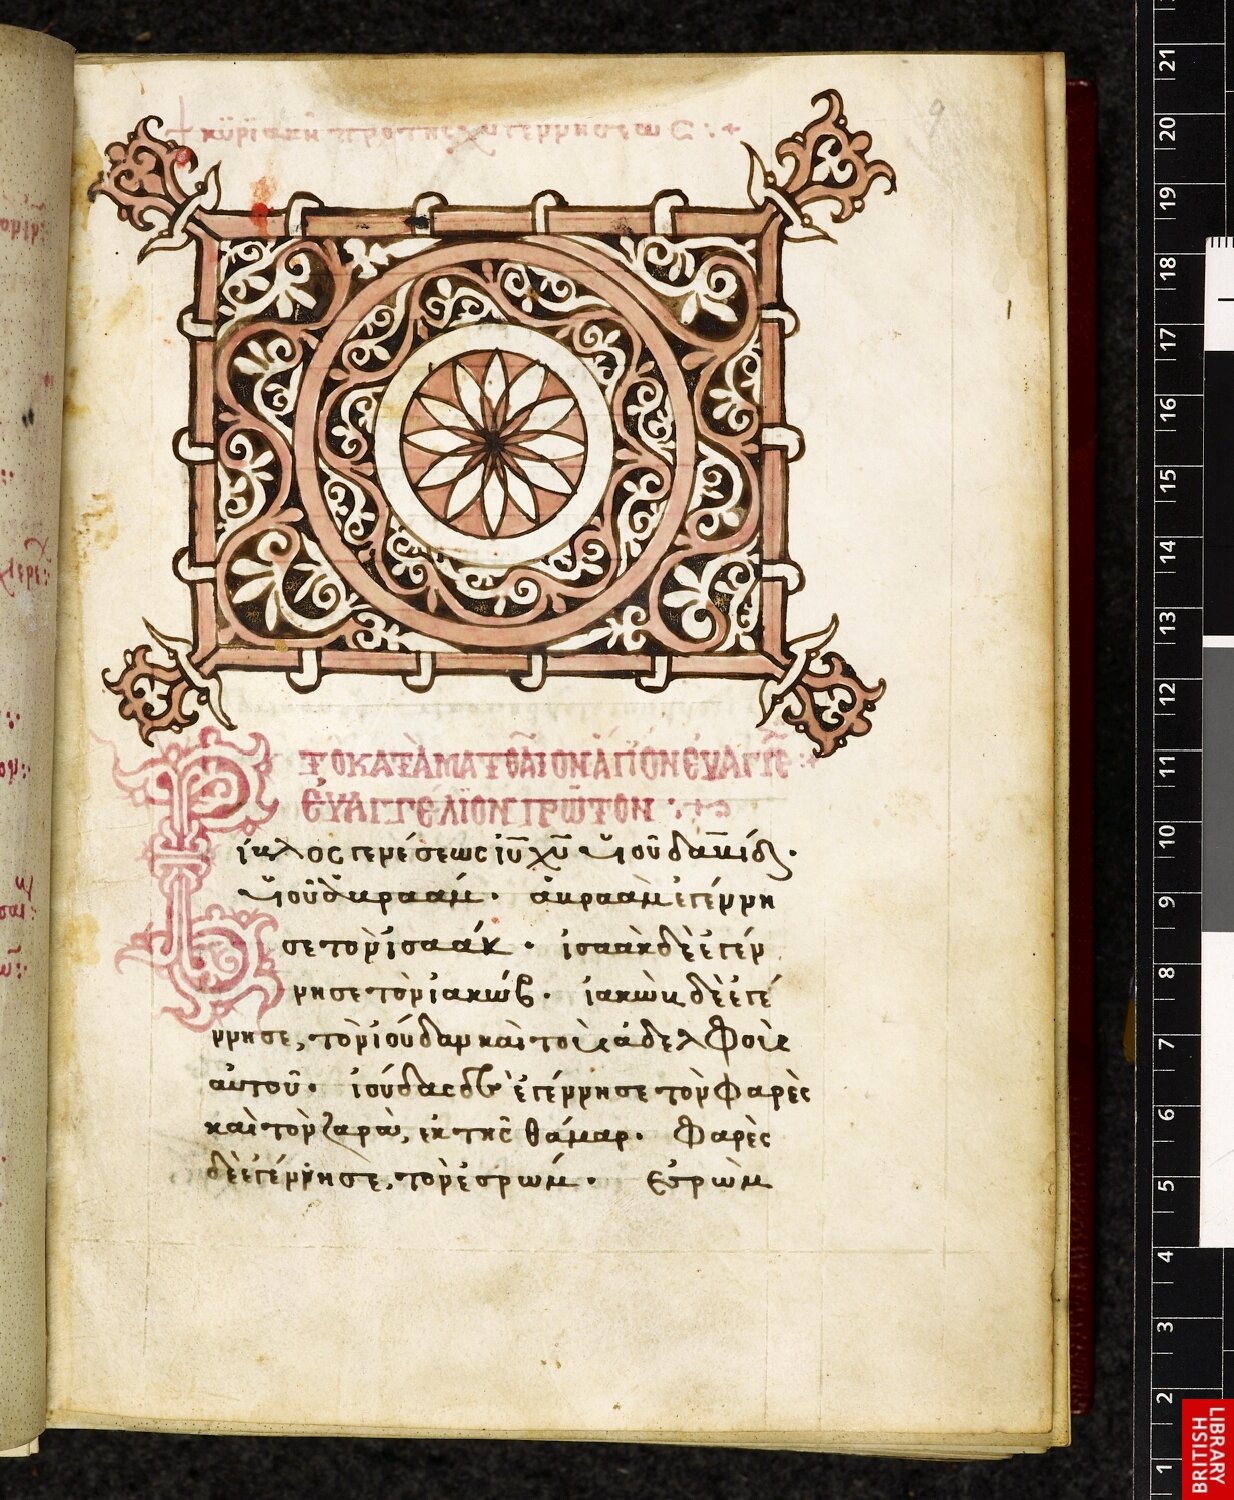 + κυριακῆ πρὸ τῆς χυ γεννήσεως :+
9
τὸ κατὰ ματθαῖον ἅγιον ευαγγε :+
ευαγγέλιον πρῶτον :+
Βίβλος γενέσεως ιυ χυ υιοῦ δαυιδ.
υιοῦ ἀβραάμ. ἀβραὰμ ἐγέννη
σε τὸν ἰσαάκ. ἰσαὰκ δὲ ἐγέν
νησε τὸν ἰακώβ. ἰακὼβ δὲ ἐγέ
ννησε, τὸν ἰούδαν καὶ τοὺς ἀδελφοὺς
αὐτοῦ. ἰούδας δὲ ἐγέννησε τὸν φαρὲς
καὶ τὸν ζαρὰ, ἐκ τῆς θάμαρ. φαρὲς
δὲ ἐγέννησε, τὸν ἐσρώμ. ἐσρὼμ
21
20
19
18
17
16
15
14
13
12
11
10
9
8
7
6
5
4
3
2
1
BRITISH
LIBRARY